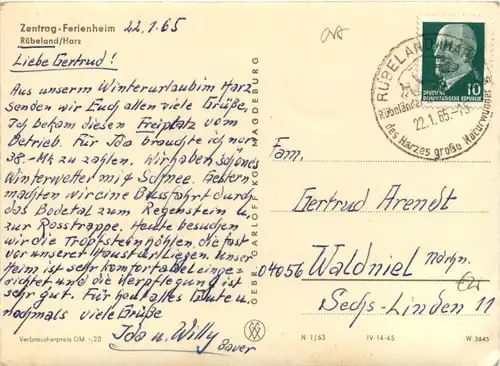 Zentrag-Ferienheim 22.1.65
Rübeland/Harz
Liebe Gertrud!
Aus unserm Winterurlaub im Harz
senden wir Euch allen viele Grüße.
Ich bekam diesen Freiplatz vom
Betrieb. Für Ida brauchte ich nur
38.-Mk zu zahlen. Wir haben schönes
Winterwetter mit Schnee. Gestern
machten wir eine Busfahrt durch
das Bodetal zum Regenstein u.
zur Rosstrappe. Heute besuchen
wir die Tropfsteinhöhlen, die fast
vor unserer Haustür liegen. Unser
Heim ist sehr komfortabel einge-
richtet und die Verpflegung ist
sehr gut. Für heut alles Gute u.
nochmals viele Grüße
Ida u. Willy
Bauer
Verbraucherpreis DM -,20
GEBR. GARLOFF KG. MAGDEBURG
RÜBELAND (HARZ)
Rübeländer
22.1.65-15
des Harzes große Naturwunder
10
DEUTSCHE
DEMOKRATISCHE REPUBLIK
Fam.
Gertrud Arendt
04056 Waldniel Ndrhn.
Sechs-Linden 11
N 1/63 IV-14-45 W 3645